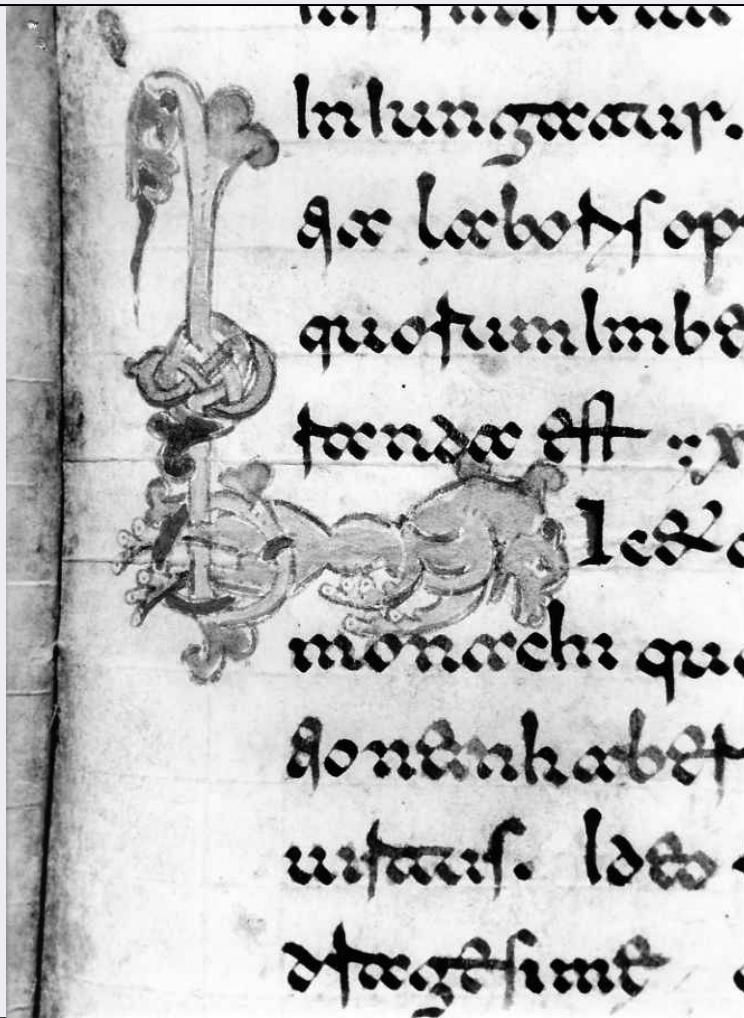 Iniungatur.
tia laboris op
quorum imbe
randa est :: x
Licet o
monachi qua
tionem haber
uirtus. Ideo
dragesime